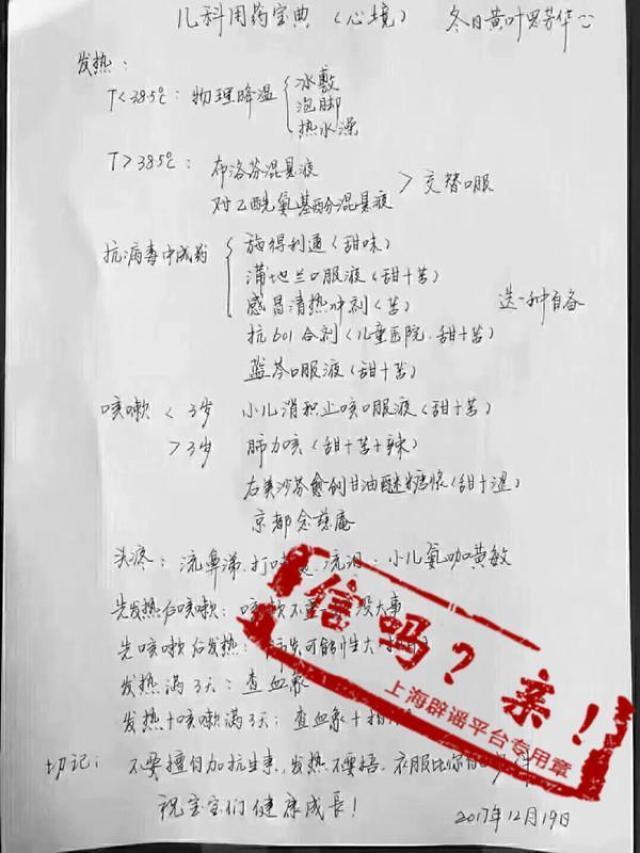 儿科用药宝典（心境） 冬日黄叶思芳华
发热：
T<38.5℃：物理降温 冰敷
泡脚
热水澡
T>38.5℃：布洛芬混悬液
对乙酰氨基酚混悬液 > 交替口服
抗病毒中成药 施得利通（甜味）
蒲地兰口服液（甜+苦）
感冒清热冲剂（苦） 选一种自备
抗601合剂（儿童医院.甜+苦）
蓝芩口服液（甜+苦）
咳嗽 <3岁 小儿消积止咳口服液（甜+苦）
>3岁 肺力咳（甜+苦+辣）
右美沙芬愈创甘油醚糖浆（甜+温）
京都念慈庵
头疼：流鼻涕.打 流泪：小儿氨咖黄敏
先发热后咳嗽：咳嗽不 没大事
先咳嗽后发热： 可能性大
发热满3天：查血象
发热+咳嗽满3天：查血象+
切记：不要擅自加抗生素，发热不要捂.衣服比你
祝宝宝们健康成长！
2017年12月19日
信吗？亲！
上海辟谣平台专用章